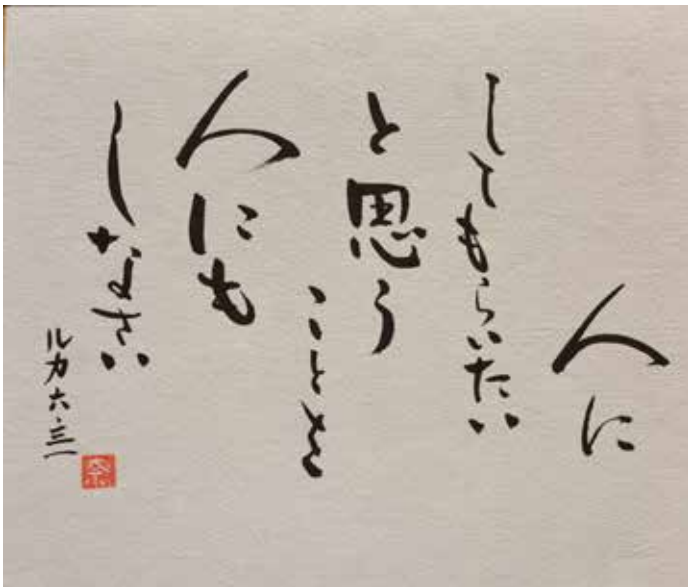 人に
してもらいたい
と思う
ことを
人にも
しなさい
ルカ六・三一